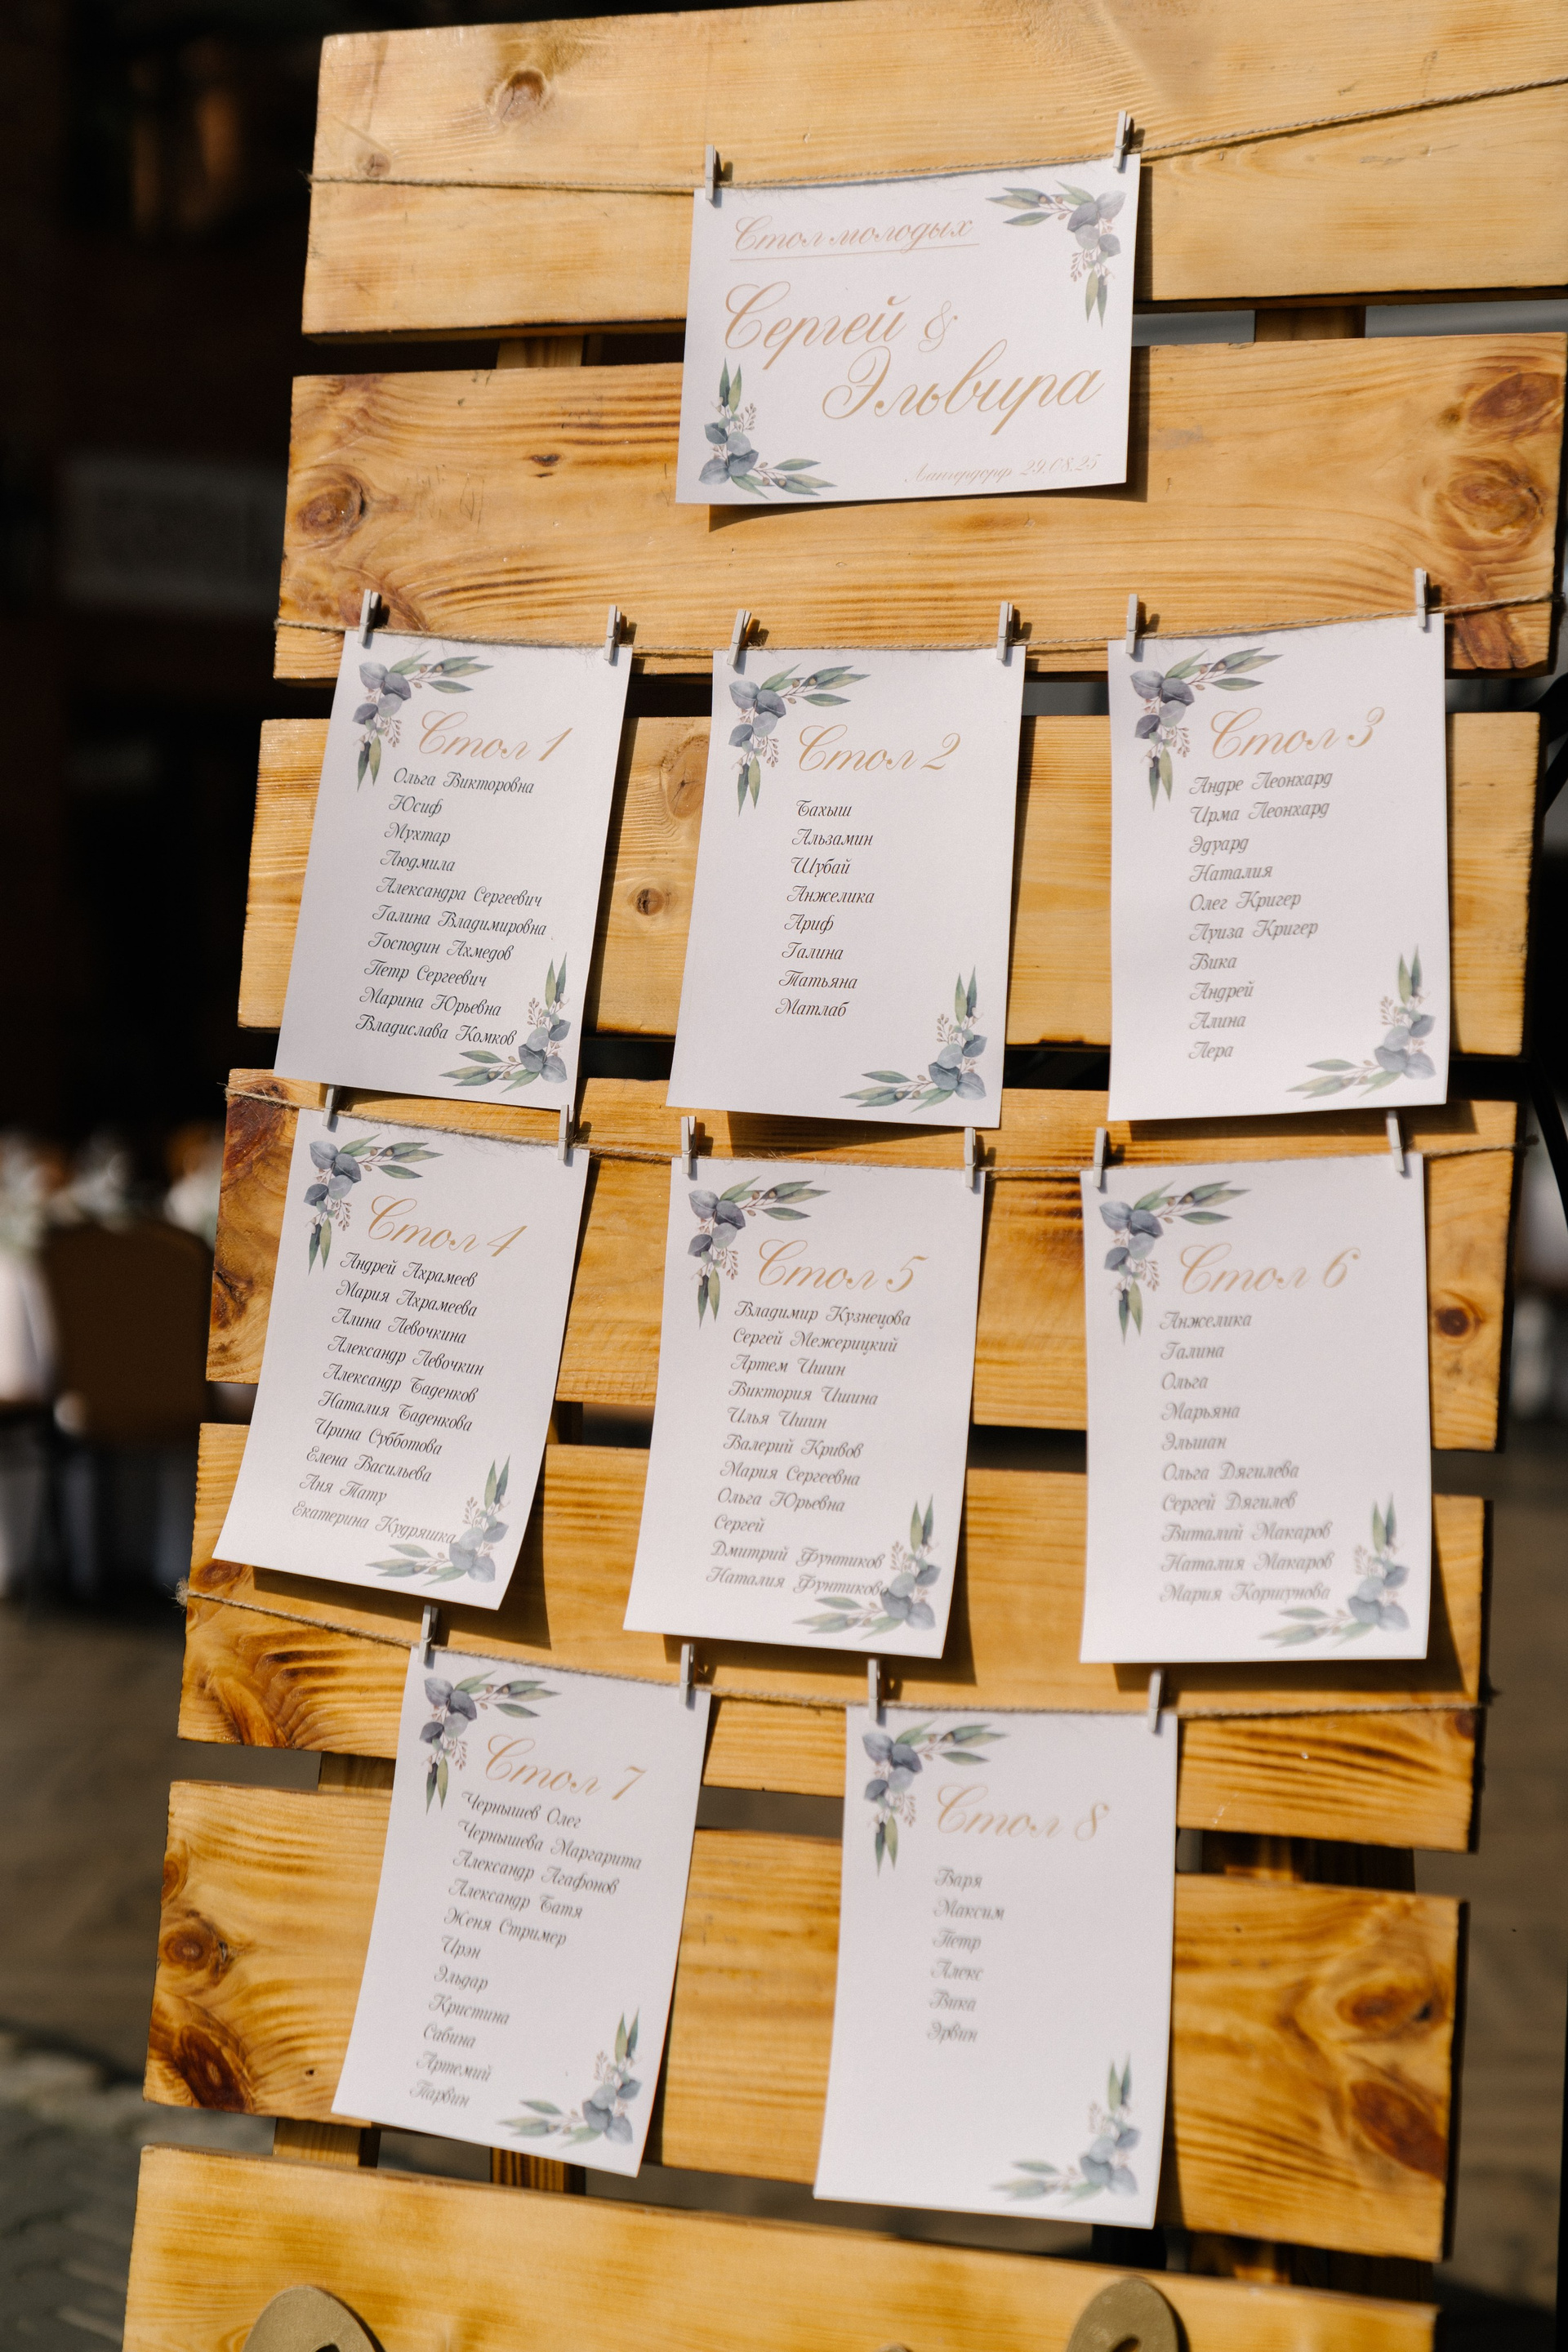 Стол молодых
Сергей &
Эльвира
Лангердорф 29.08.25
Стол 1
Ольга Викторовна
Юсиф
Мухтар
Людмила
Александра Сергеевич
Галина Владимировна
Господин Ахмедов
Петр Сергеевич
Марина Юрьевна
Владислава Комков
Стол 2
Бахыш
Альзамин
Шубай
Анжелика
Ариф
Галина
Татьяна
Матлаб
Стол 3
Андре Леонхард
Ирма Леонхард
Эдуард
Наталия
Олег Кригер
Луиза Кригер
Вика
Андрей
Алина
Лера
Стол 4
Андрей Ахрамеев
Мария Ахрамеева
Алина Левочкина
Александр Левочкин
Александр Баденков
Наталия Баденкова
Ирина Субботова
Елена Васильева
Аня Тату
Екатерина Кудряшка
Стол 5
Владимир Кузнецова
Сергей Межерицкий
Артем Ишин
Виктория Ишина
Илья Ишин
Валерий Кривов
Мария Сергеевна
Ольга Юрьевна
Сергей
Дмитрий Фунтиков
Наталия Фунтикова
Стол 6
Анжелика
Галина
Ольга
Марьяна
Эльшан
Ольга Дягилева
Сергей Дягилев
Виталий Макаров
Наталия Макаров
Мария Коршунова
Стол 7
Чернышев Олег
Чернышева Маргарита
Александр Агафонов
Александр Батя
Женя Стример
Ирэн
Эльдар
Кристина
Сабина
Артемий
Парвин
Стол 8
Варя
Максим
Петр
Алекс
Вика
Эрвин